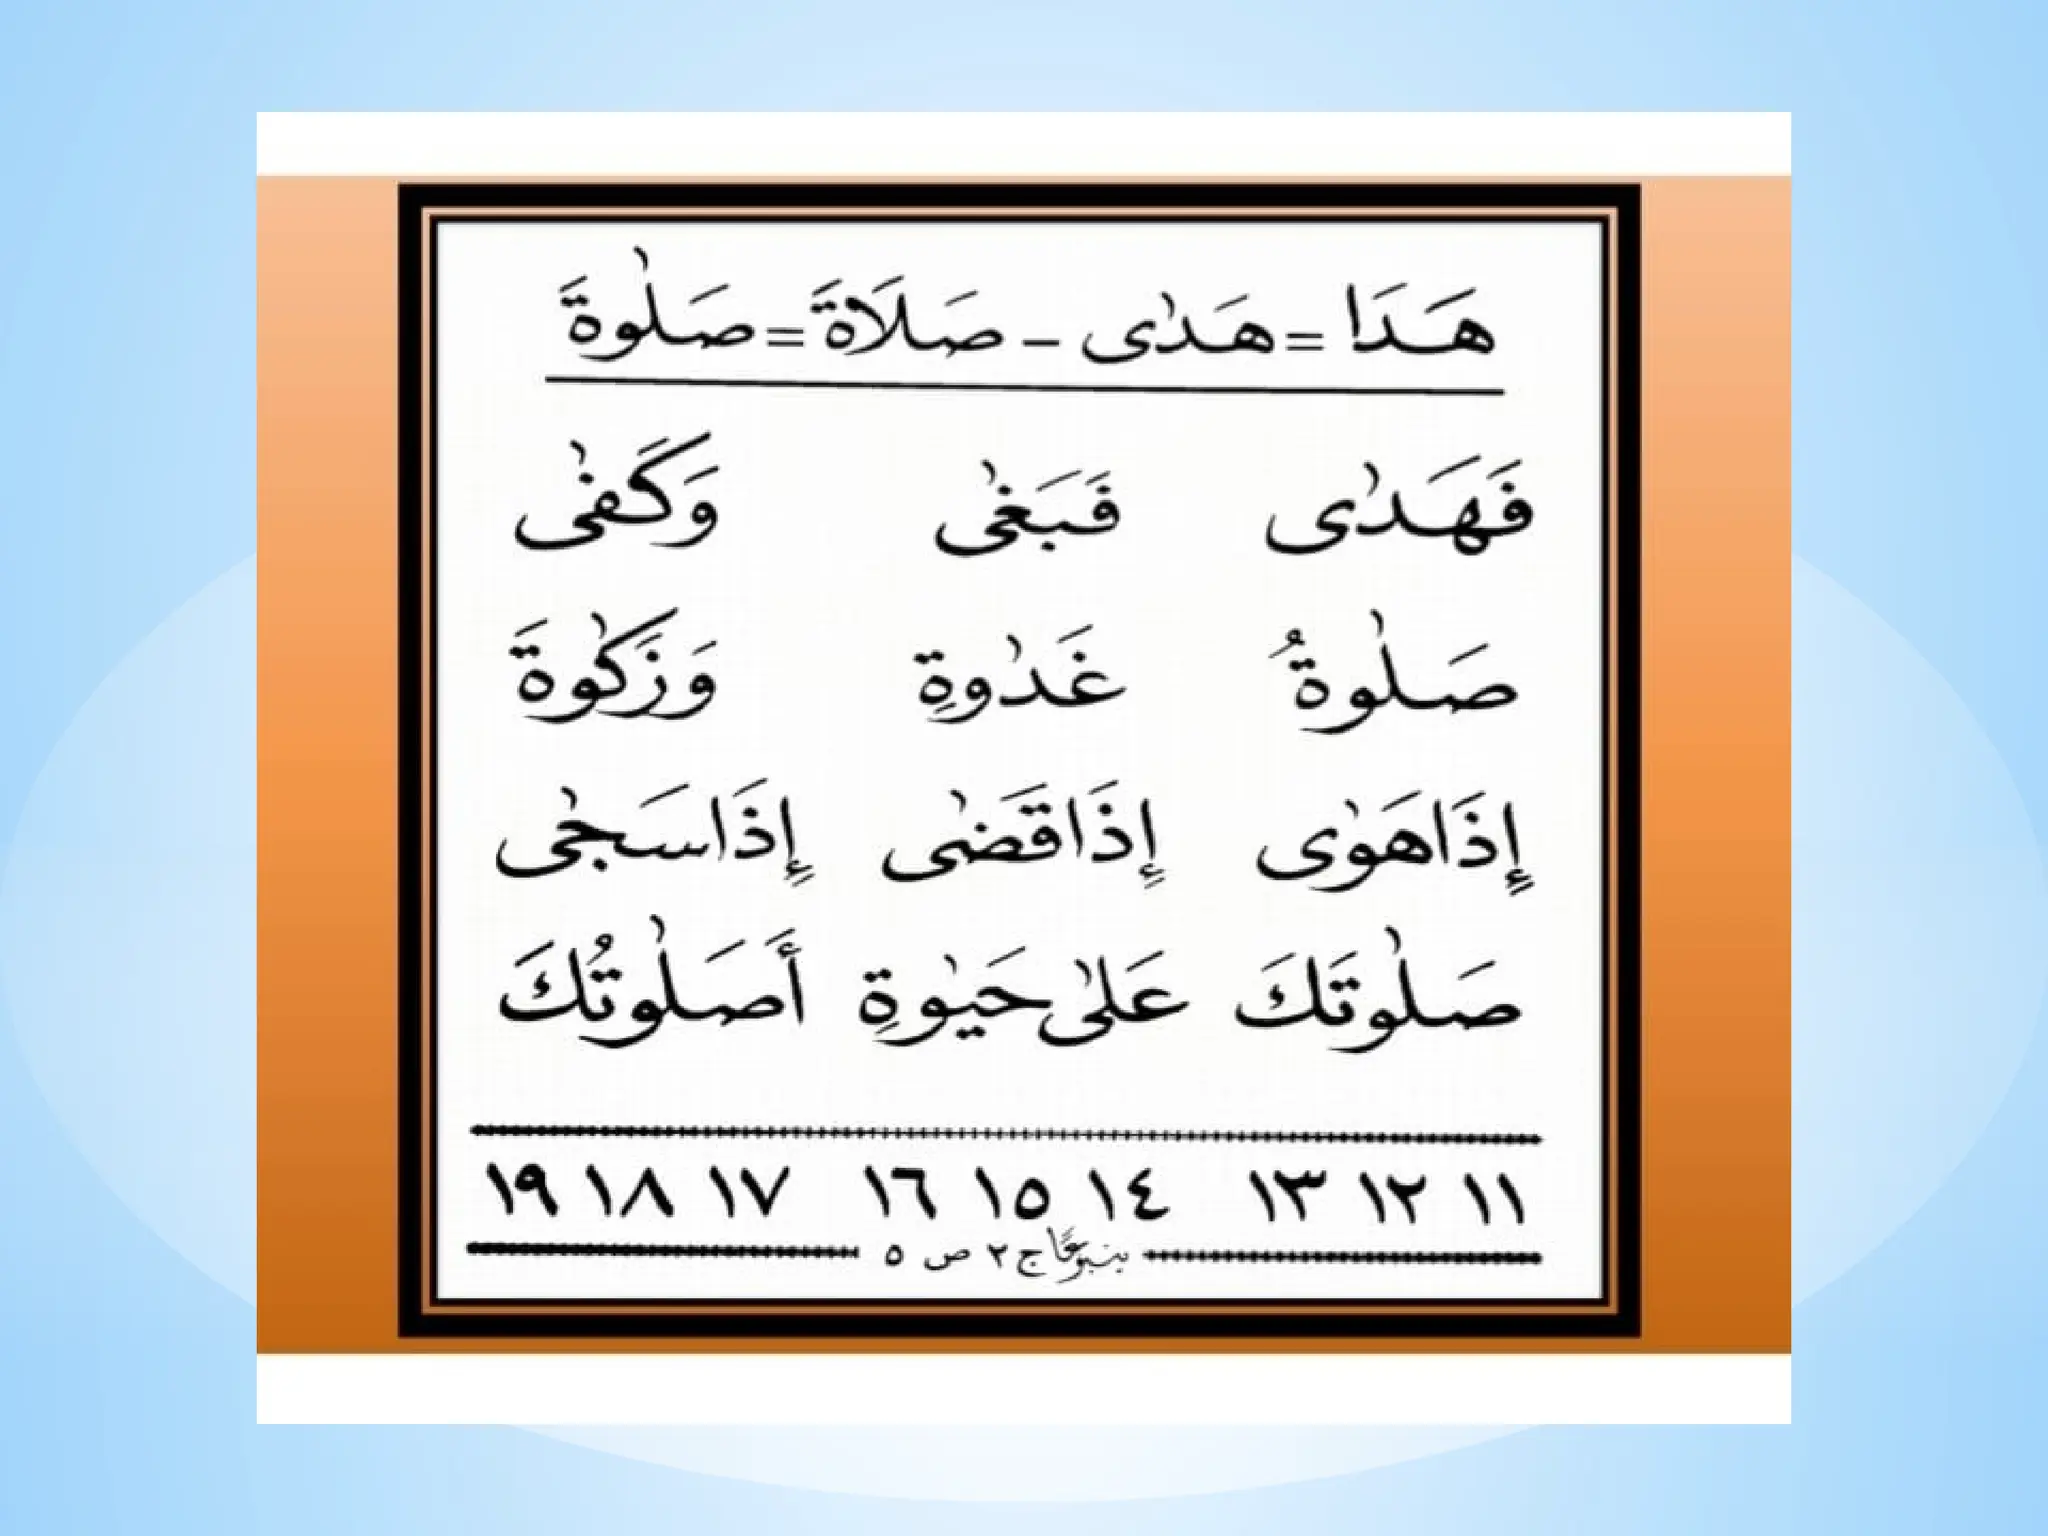 هَدَا = هَدٰى - صَلَاةَ = صَلٰوةَ
فَهَدٰى فَبَغٰى وَكَفٰى
صَلٰوةُ غَدٰوةِ وَزَكٰوةَ
إِذَاهَوٰى إِذَاقَضٰى إِذَاسَجٰى
صَلٰوتَكَ عَلٰى حَيٰوةِ أَصَلٰوتُكَ
١١ ١٢ ١٣ ١٤ ١٥ ١٦ ١٧ ١٨ ١٩
ج ٢ ص ٥